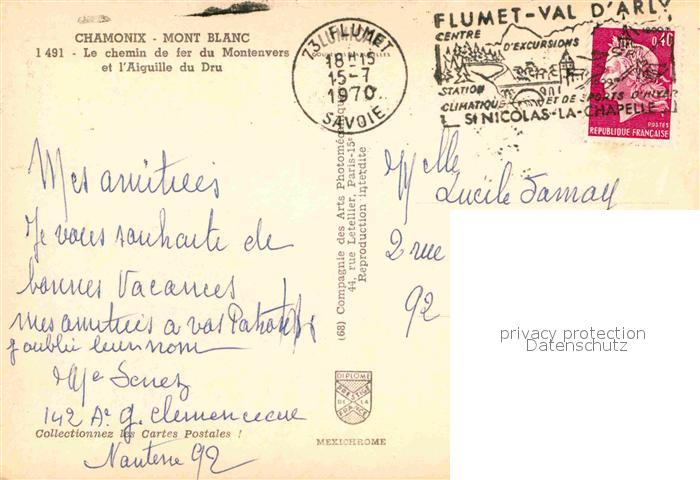 CHAMONIX - MONT BLANC
1 491 - Le chemin de fer du Montenvers
et l'Aiguille du Dru
73 FLUMET
18H15
15-7
1970
SAVOIE
FLUMET-VAL D'ARLY
CENTRE
D'EXCURSIONS
STATION
CLIMATIQUE ET DE SPORTS D'HIVER
St NICOLAS-LA-CHAPELLE
0,40
POSTES
REPUBLIQUE FRANÇAISE
Mes amitiées
Je vous souhaite de
bonnes Vacances
mes amitiées a vos Patrons
j'oublie leur nom
Mme
142 Av. G. Clemenceau
Nanterre 92
Collectionnez les Cartes Postales !
(68) Compagnie des Arts Photomécaniques
44, rue Letellier, Paris-15e
Reproduction interdite
DIPLOME
PRESTIGE
DE LA
FRANCE
MEXICHROME
Melle
Lucile
2 rue
92
privacy protection
Datenschutz